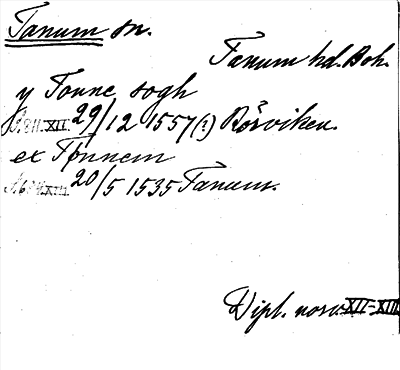 Tanum sn.
Tanum hd. Boh.
y Tonne sogh
29/12 1557(?) Rörviken.
ex Tønnem
20/5 1535 Tanum.
Dipl. norv. XII-XIII